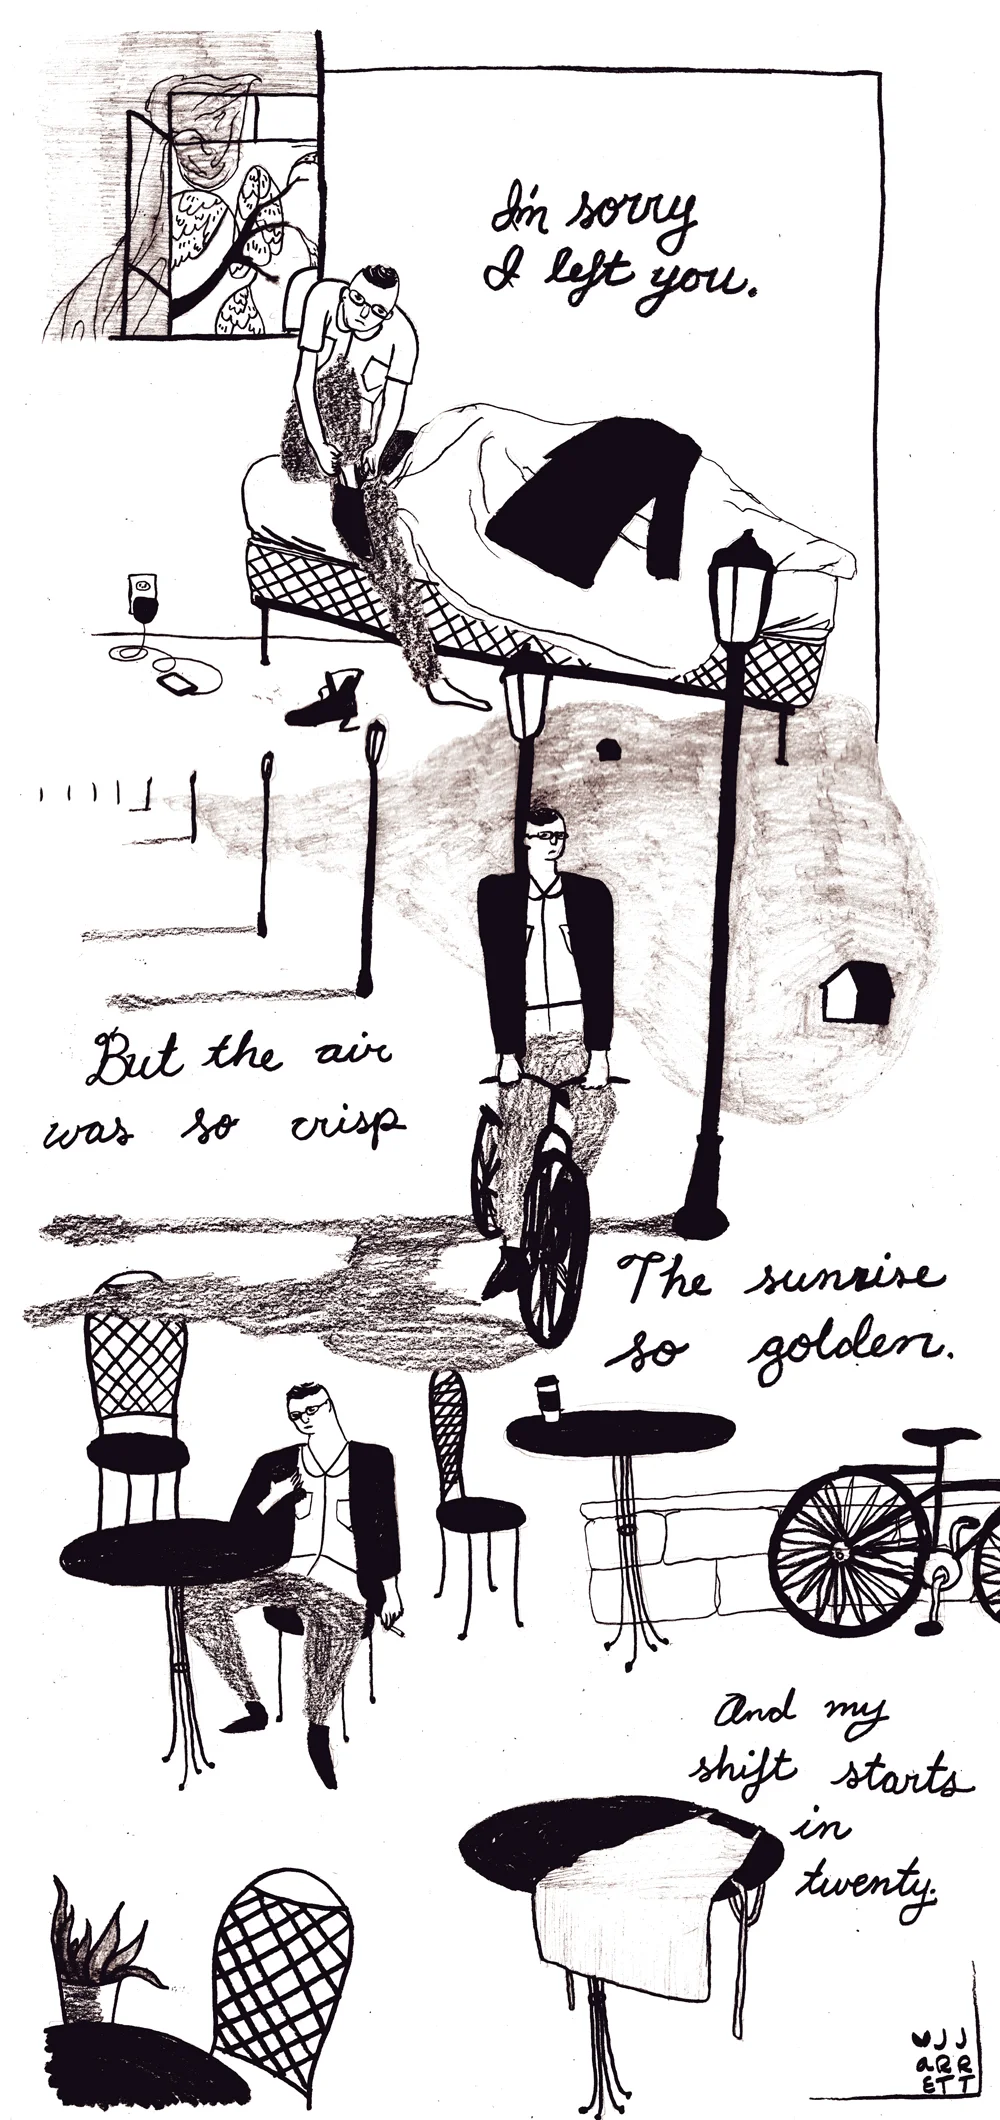 I'm sorry
I left you.
But the air
was so crisp
The sunrise
so golden.
And my
shift starts
in
twenty.
WJJ
aRR
ETT